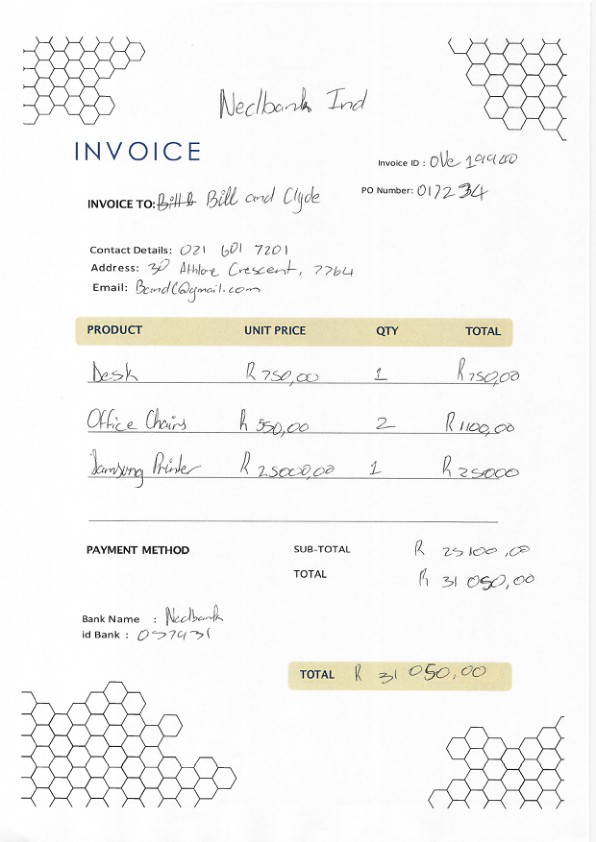 Nedbank Ind
INVOICE
Invoice ID : OVe 19940
INVOICE TO: Bill & Bill and Clyde
PO Number: 017234
Contact Details: 021 601 7201
Address: 30 Athlone Crescent, 7764
Email: BandC@gmail.com
PRODUCT UNIT PRICE QTY TOTAL
Desk R 750,00 1 R 750,00
Office Chairs R 550,00 2 R 1100,00
Samsung Printer R 25000,00 1 R 25000
PAYMENT METHOD
SUB-TOTAL R 25100,00
TOTAL R 31 050,00
Bank Name : Nedbank
id Bank :
TOTAL R 31 050,00